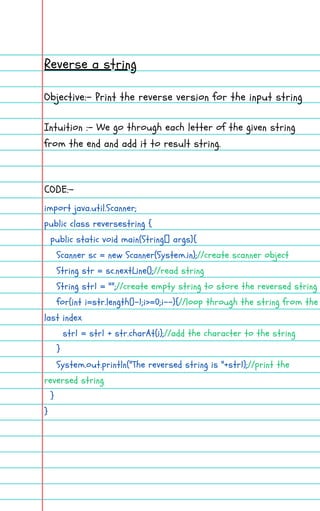 Reverse a string
Objective:- Print the reverse version for the input string
Intuition :- We go through each letter of the given string
from the end and add it to result string.
CODE:-
import java.util.Scanner;
public class reversestring {
public static void main(String[] args){
Scanner sc = new Scanner(System.in);//create scanner object
String str = sc.nextLine();//read string
String str1 = "";//create empty string to store the reversed string
for(int i=str.length()-1;i>=0;i--){//loop through the string from the
last index
str1 = str1 + str.charAt(i);//add the character to the string
}
System.out.println("The reversed string is "+str1);//print the
reversed string
}
}